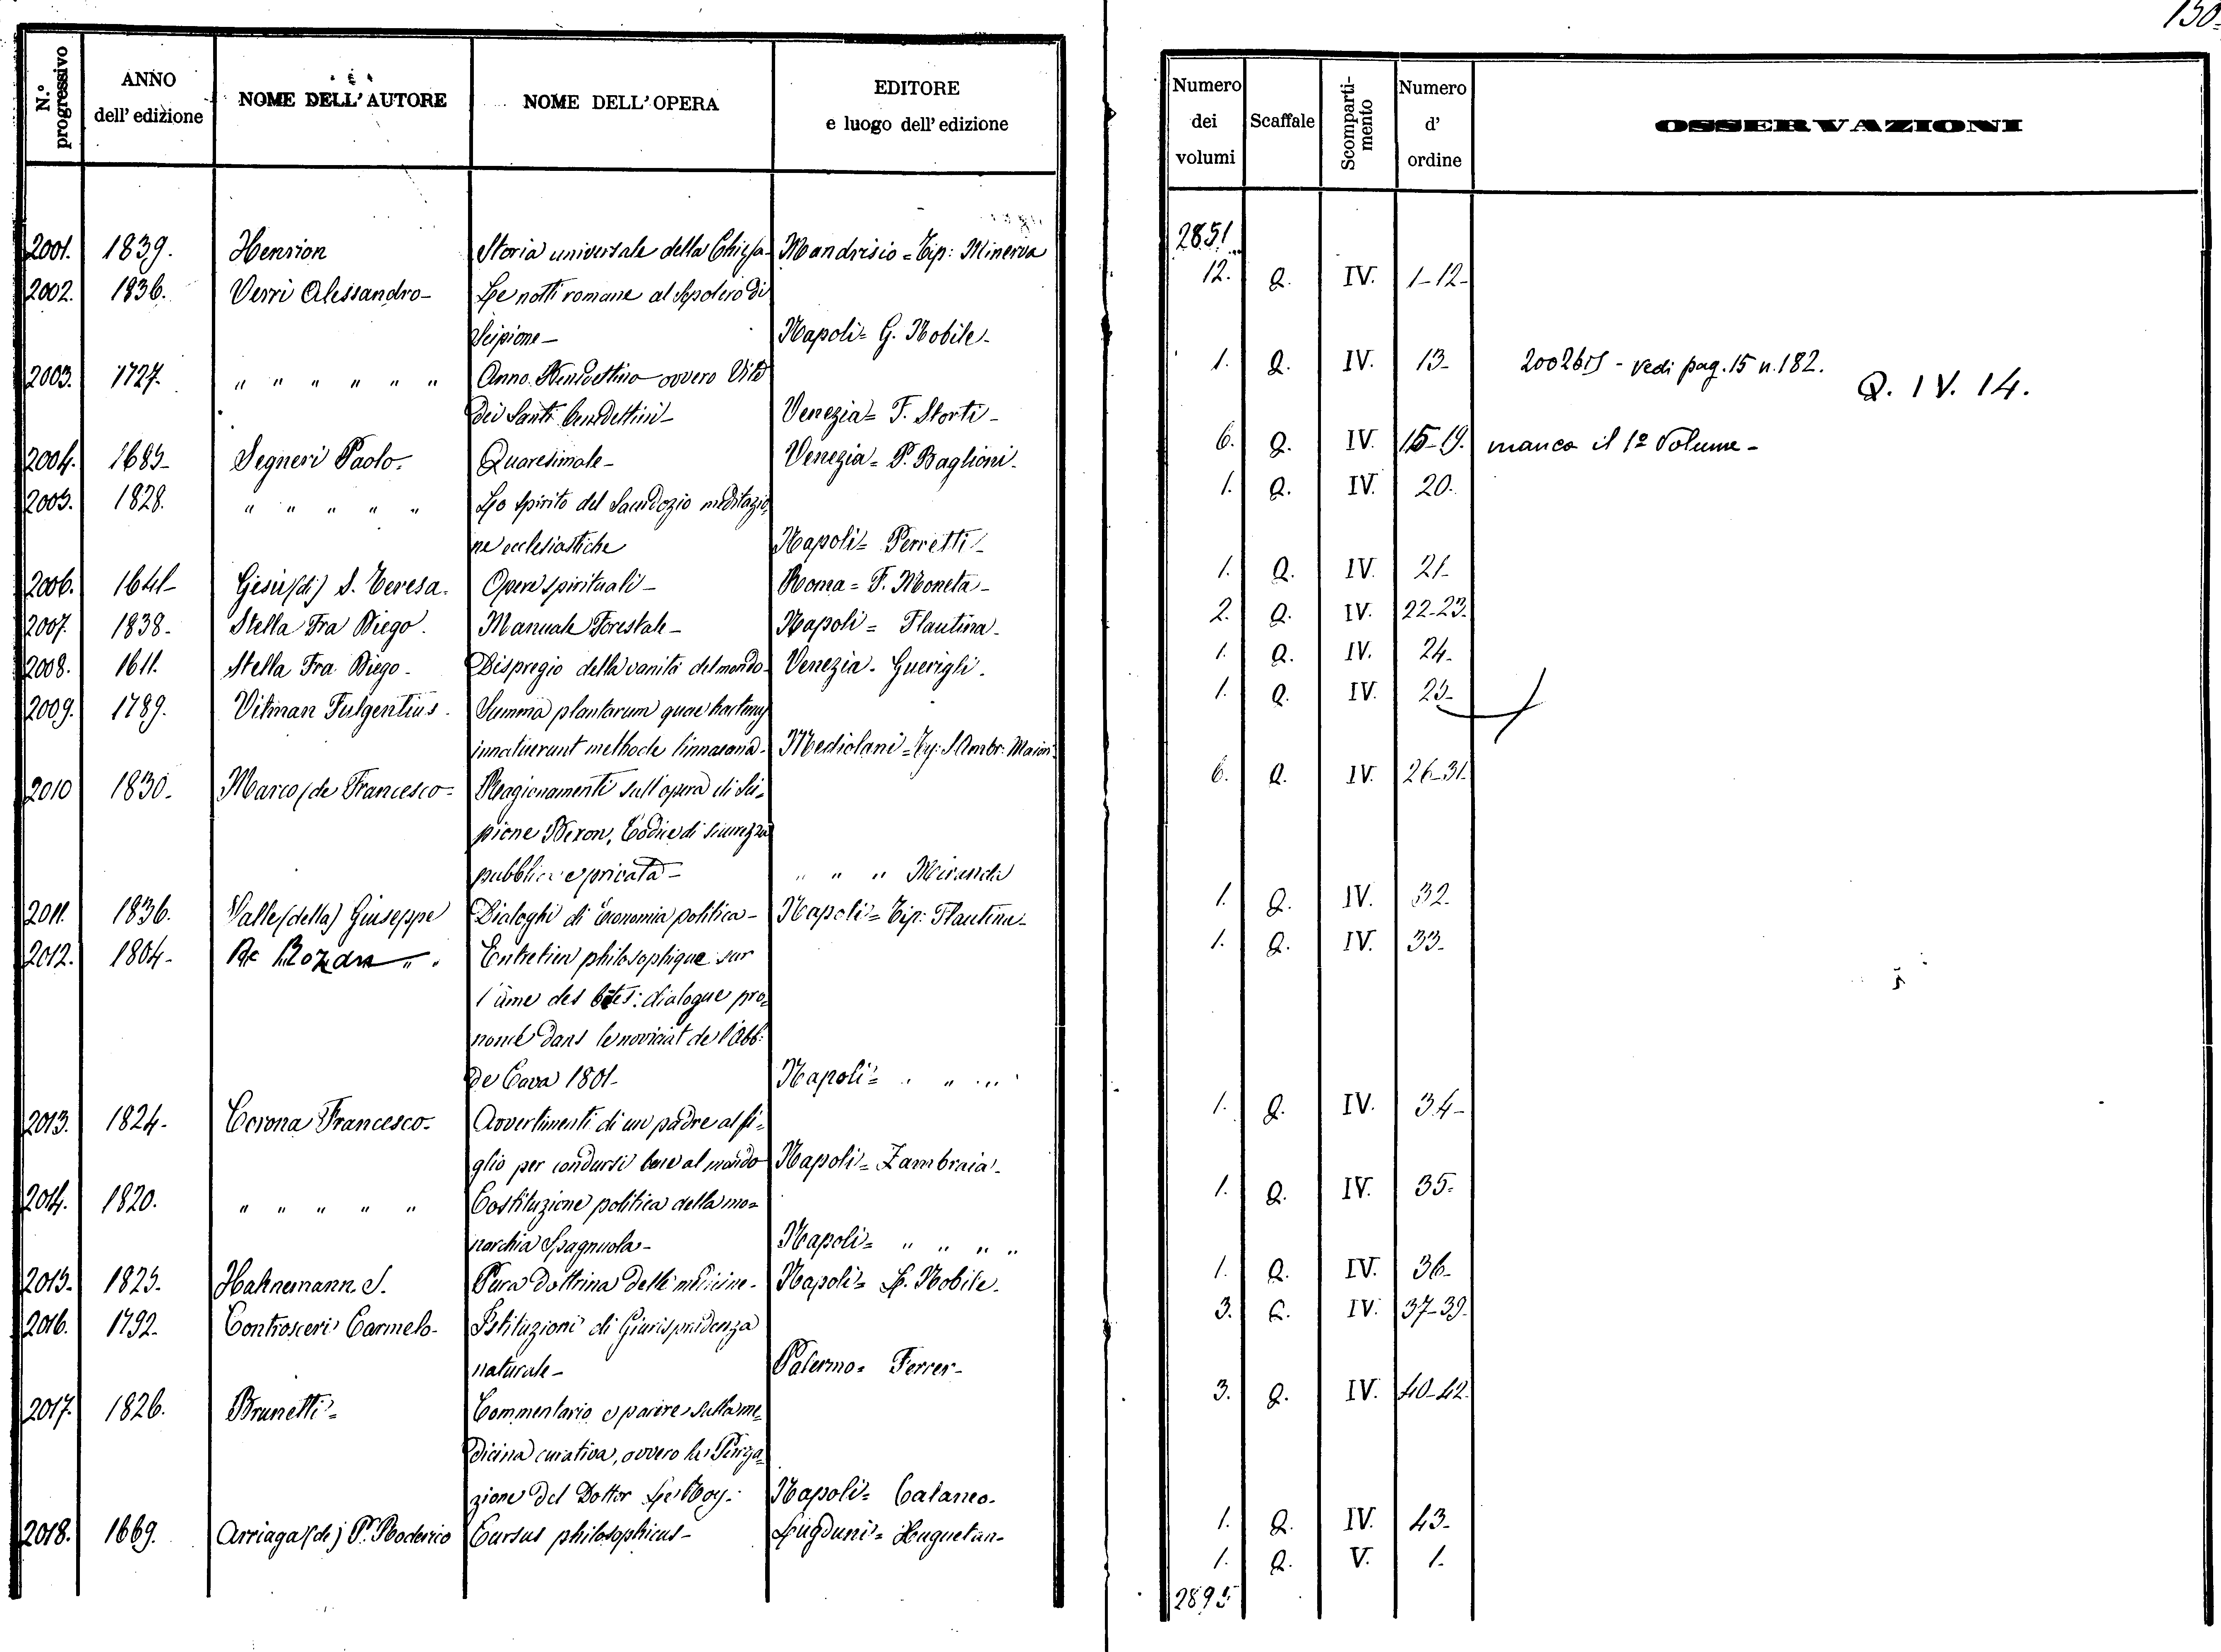 130.
N.° progressivo
ANNO dell' edizione
NOME DELL' AUTORE
NOME DELL' OPERA
EDITORE e luogo dell' edizione
Numero dei volumi
Scaffale
Scomparti-mento
Numero d' ordine
OSSERVAZIONI
2851
2001. 1839. Henrion Storia universale della Chiesa- Mandrisio = Tip: Minerva 12. Q. IV. 1-12-
2002. 1836. Verri Alessandro- Le notti romane al Sepolcro di
Scipione- Napoli= G. Nobile- 1. Q. IV. 13- 2002bis - vedi pag. 15 n. 182.
Q. IV. 14.
2003. 1727. " " " " " " Anno Benedettino ovvero Vite
dei Santi benedettini- Venezia= F. Storti- 6. Q. IV. 15-19. manca il 1º Volume-
2004. 1685- Segneri Paolo. Quaresimale- Venezia= P. Baglioni- 1. Q. IV. 20.
2005. 1828. " " " " " Lo spirito del Sacerdozio meditazio=
ne ecclesiastiche Napoli= Perretti- 1. Q. IV. 21-
2006. 1641- Gesù (di) S. Teresa. Opere spirituali- Roma= F. Moneta- 2. Q. IV. 22-23.
2007. 1838- Stella Fra Diego. Manuale Forestale- Napoli= Flautina- 1. Q. IV. 24-
2008. 1611. Stella Fra Diego- Dispregio della vanità del mondo- Venezia- Guerigli. 1. Q. IV. 25-
2009. 1789. Vitman Fulgentius. Summa plantarum quae hactenus
innotuerunt methodo linnaeana- Mediolani= Ty: S. Ambr: Maior: 6. Q. IV. 26-31.
2010 1830. Marco (de Francesco= Ragionamenti sull'opera di Sci=
pione Bexon, Codice di sicurezza
pubblica e privata- " " " Miranda 1. Q. IV. 32.
2011. 1836. Valle (della) Giuseppe Dialoghi di Economia politica- Napoli= Tip: Flautina- 1. Q. IV. 33-
2012. 1804- De Rozan " . Entretien philosophique sur
l'âme des bêtes: dialogue pro=
noncé dans le noviciat de l'Abb:
de Cava 1801- Napoli= " " " 1. Q. IV. 34-
2013. 1824- Corona Francesco- Avvertimenti di un padre al fi=
glio per condursi bene al mondo Napoli= Zambraia- 1. Q. IV. 35-
2014. 1820. " " " " " Costituzione politica della mo=
narchia Spagnuola- Napoli= " " " " 1. Q. IV. 36-
2015. 1825. Hahnemann S. Pura dottrina delle medicine- Napoli= L. Nobile. 3. Q. IV. 37-39.
2016. 1792. Controsceri Carmelo- Istituzioni di Giurisprudenza
naturale- Palermo= Ferrer- 3. Q. IV. 40-42.
2017. 1826. Brunetti= Commentario e parere sulla me=
dicina curativa, ovvero la Purga=
zione del Dottor Le Roy- Napoli= Cataneo- 1. Q. IV. 43-
2018. 1669. Arriaga (de) P. Roderico Cursus philosophicus- Lugduni= Huguetan- 1. Q. V. 1.
2895